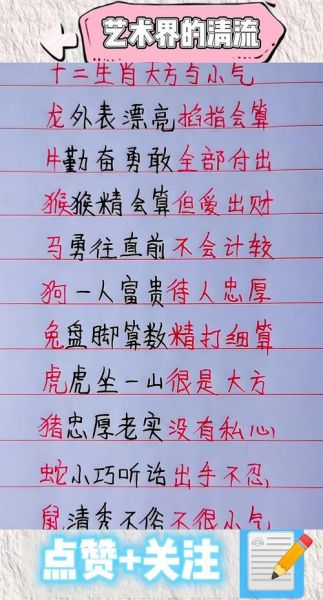 艺术界的清流
十二生肖大方与小气
龙外表漂亮掐指会算
牛勤奋勇敢全部付出
猴猴精会算但爱出财
马勇往直前不会计较
狗一人富贵待人忠厚
兔盘脚算数精打细算
虎虎坐一山很是大方
猪忠厚老实没有私心
蛇小巧听话出手不忍
鼠清秀不俗不很小气
点赞+关注